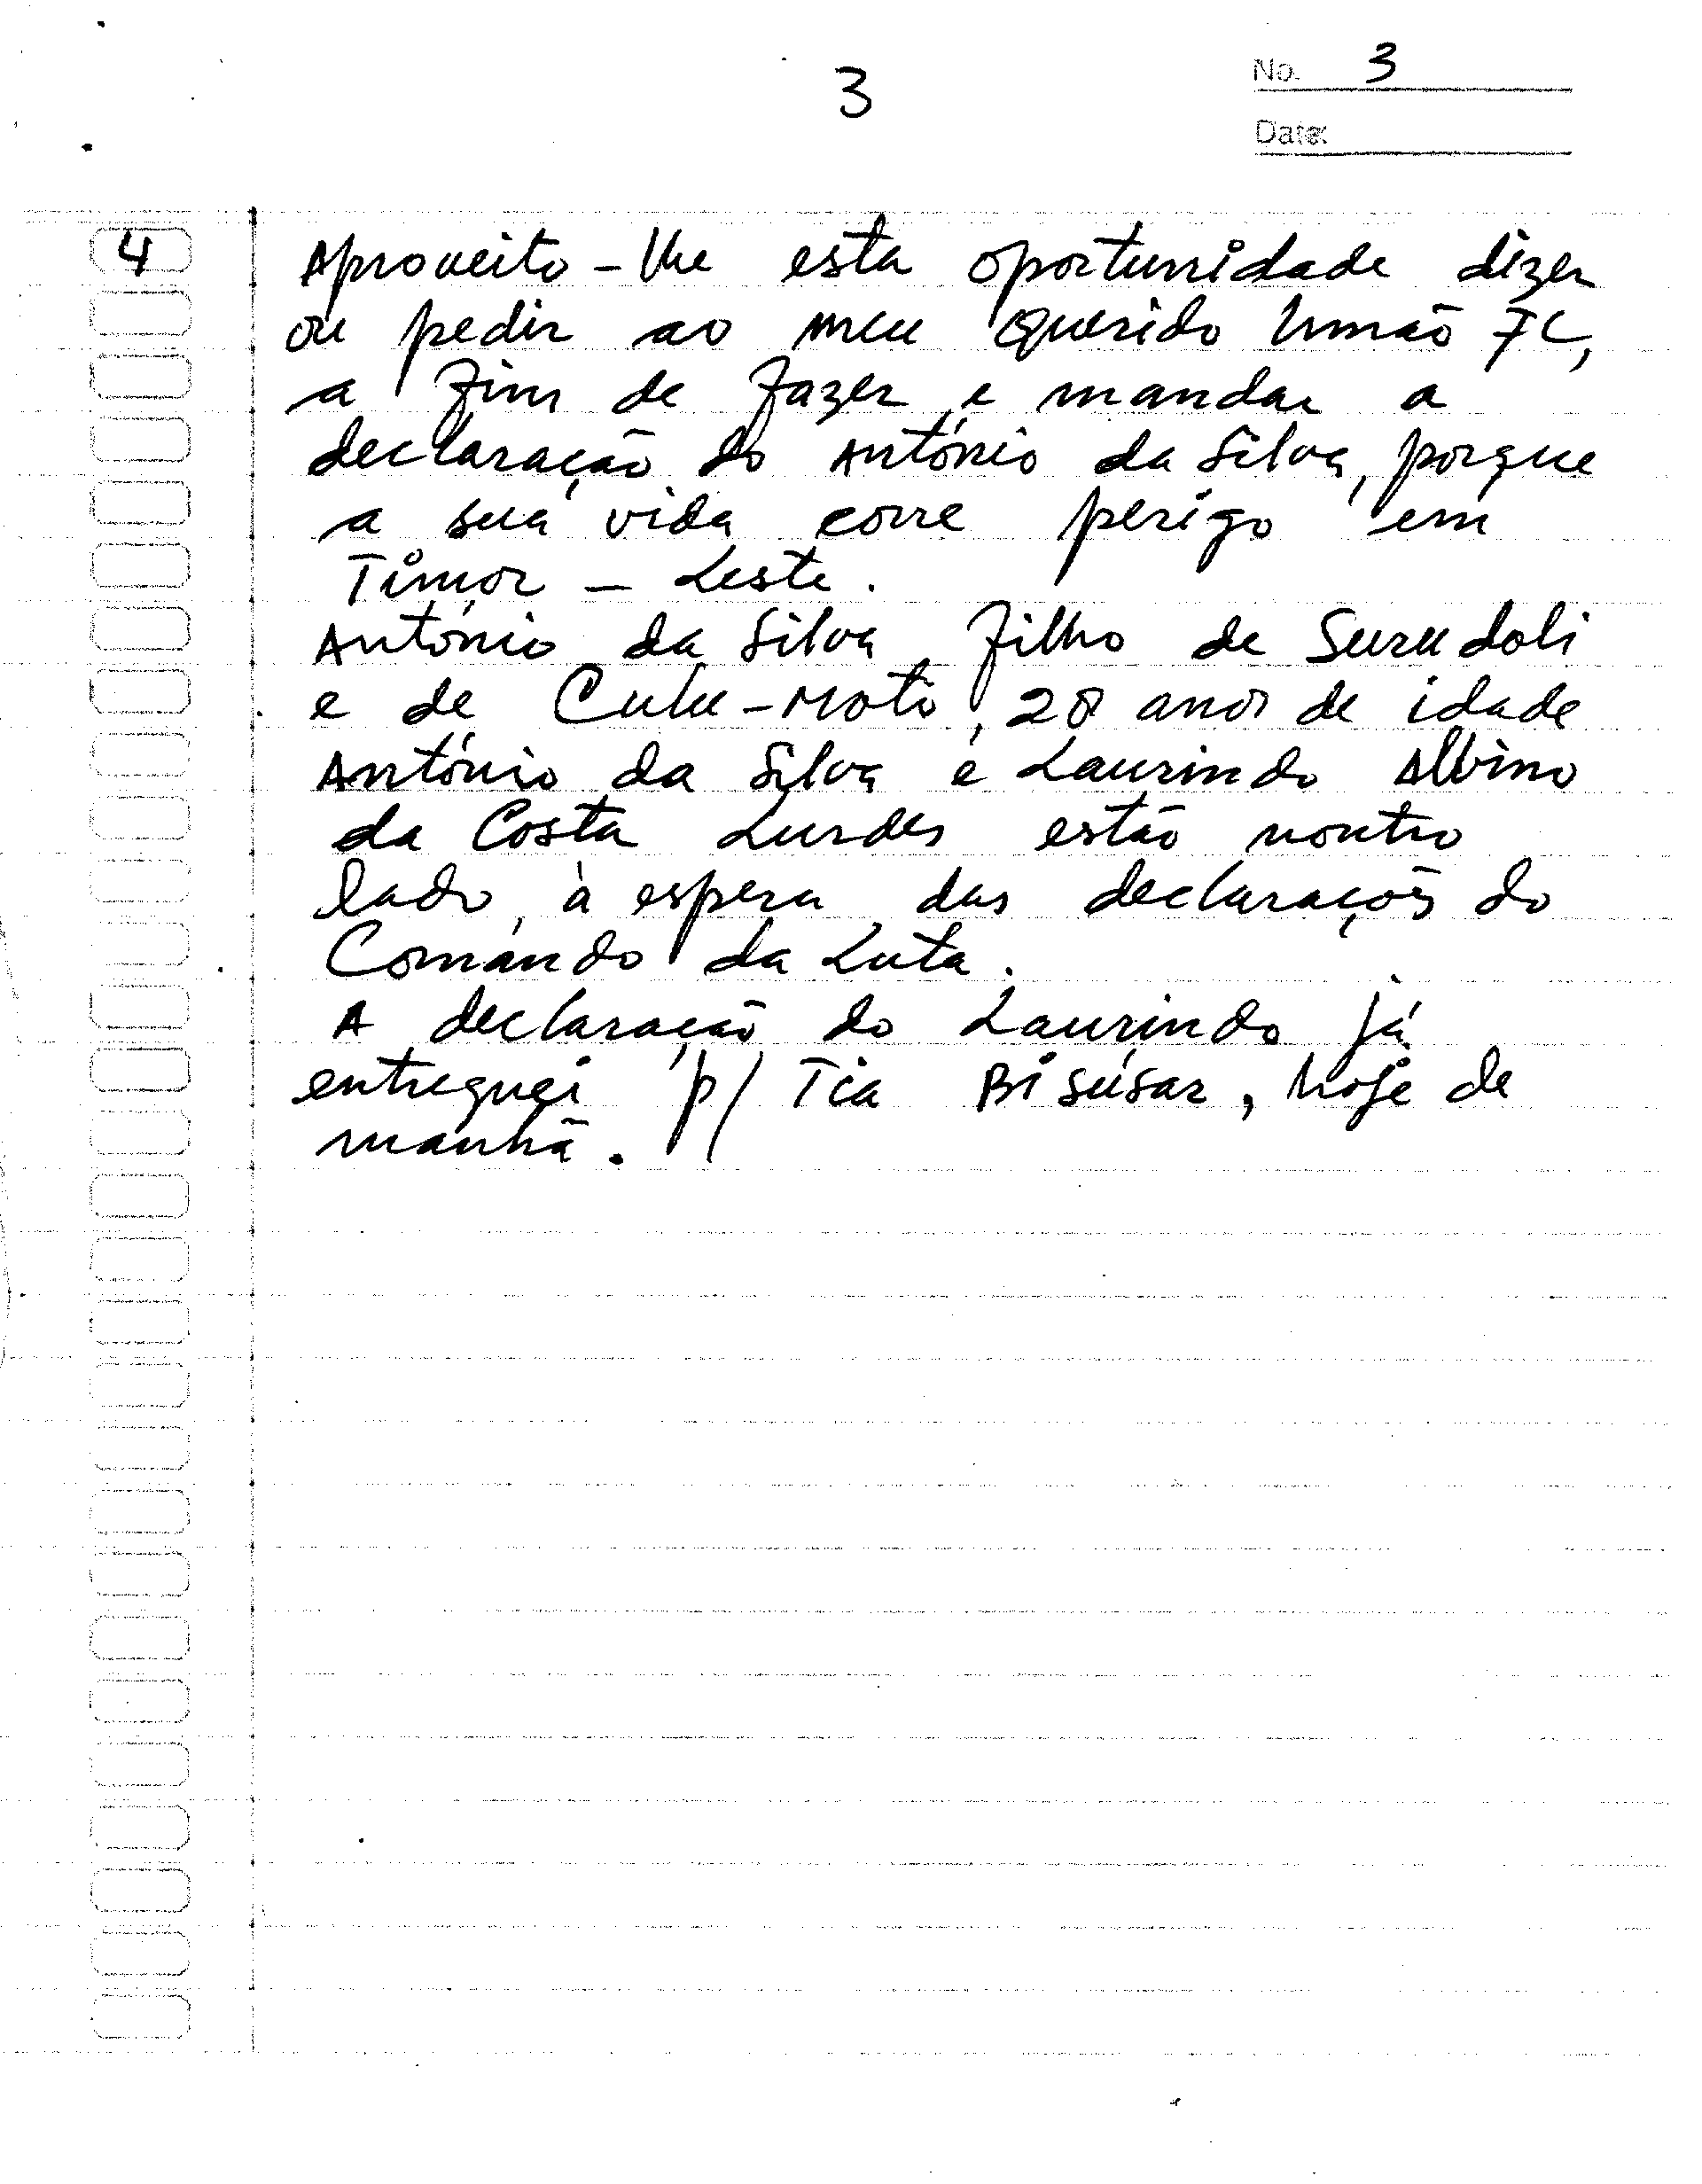 No. 3
3
Date:
4 Aproveito-lhe esta oportunidade dizer
ou pedir ao meu querido Irmão FC,
a fim de fazer e mandar a
declaração do António da Silva, porque
a sua vida corre perigo em
Timor - Leste.
António da Silva, filho de Surudoli
e de Culu-Moto, 28 anos de idade
António da Silva e Laurindo Albino
da Costa Lurdes estão noutro
lado, à espera das declarações do
Comando da Luta.
A declaração do Laurindo já
entreguei p/ Tia Bisúsar, hoje de
manhã.